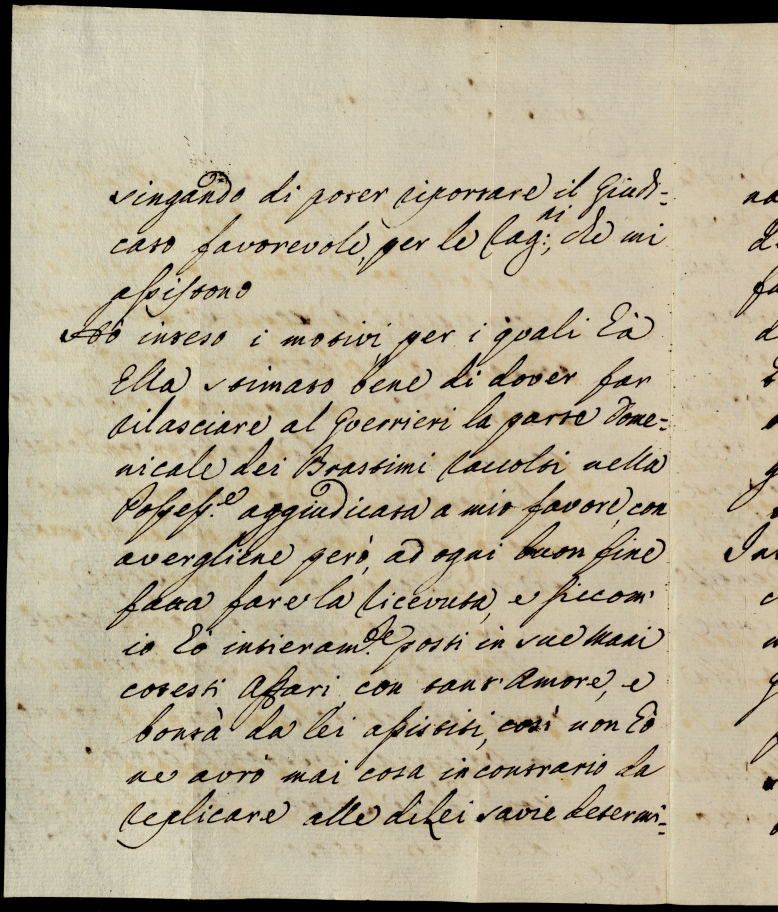 singando di poter riportare il Giudi=
cato favorevole, per le Rag:ni, che mi
assistono
Hò inteso i motivi per i quali hà
Ella stimato bene di dover far
rilasciare al Guerrieri la parte Dome=
nicale dei Brastimi raccolti nella
Possess.e aggiudicata a mio favore, con
avergliene però, ad ogni buon fine
fatta fare la ricevuta, e siccom'
io hò intieram.te posti in sue mani
cotesti affari con tant'Amore, e
bontà da lei assistiti, così non hò
ne avrò mai cosa incontrario da
replicare alle dilei savie determi=
na
d
fa
d
g